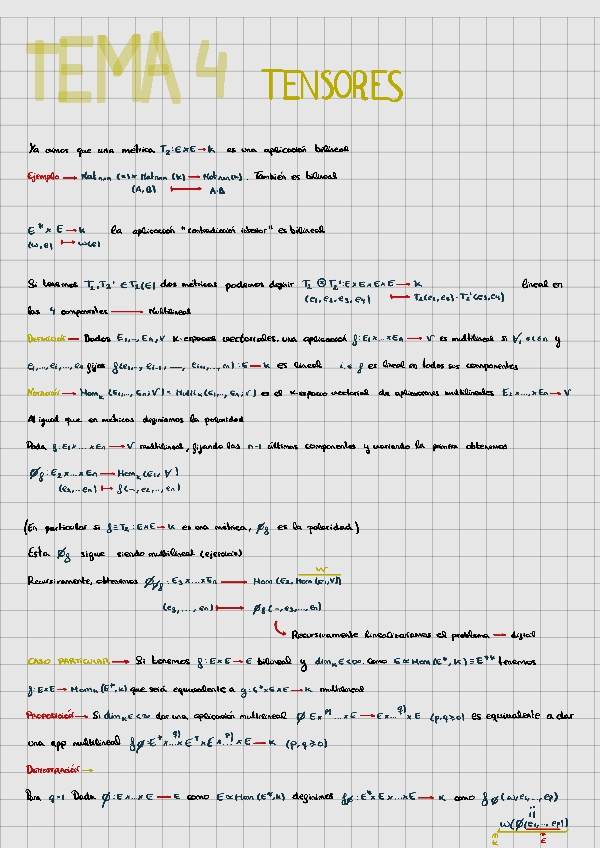 TEMA 4 TENSORES
Ya vimos que una métrica T₂: E×E → K es una aplicación bilineal
Ejemplo → Matₙₓₙ(K) × Matₙₓₙ(K) → Matₙₓₙ(K). También es bilineal
(A,B) ↦ A·B
E* × E → K la aplicación "contradicción interior" es bilineal
(ω,e) ↦ ω(e)
Si tenemos T₂,T₂' ∈ T₂(E) dos métricas podemos definir T₂ ⊗ T₂': E×E×E×E → K lineal en
(e₁,e₂,e₃,e₄) ↦ T₂(e₁,e₂)·T₂'(e₃,e₄)
las 4 componentes → Multilineal
Definición → Dados E₁,...,Eₙ,V K-espacios vectoriales, una aplicación f: E₁×...×Eₙ → V es multilineal si ∀ᵢ ≤ i ≤ n y
e₁,...,eₙ fijos f(e₁,...,eᵢ₋₁, __, eᵢ₊₁,...,n): E → K es lineal i.e f es lineal en todas sus componentes
Notación → Homₖ(E₁,...,Eₙ;V) = Multiₖ(E₁,...,Eₙ;V) es el K-espacio vectorial de aplicaciones multilineales E₁×...×Eₙ → V
Al igual que en métricas definíamos la polaridad
Dada f: E₁×...×Eₙ → V multilineal, fijando las n-1 últimas componentes y variando la primera obtenemos
∅f: E₂×...×Eₙ → Homₖ(E₁,V)
(e₂,...,eₙ) ↦ f(-,e₂,...,eₙ)
(En particular si f≡T₂: E×E → K es una métrica, ∅f es la polaridad)
Esta ∅f sigue siendo multilineal (ejercicio)
W
Recursivamente, obtenemos ∅∅f: E₃×...×Eₙ → Hom(E₂, Hom(E₁,V))
(e₃,...,eₙ) ↦ ∅f(-,e₃,...,eₙ)
Recursivamente linealizaríamos el problema →
CASO PARTICULAR → Si tenemos f: E×E → E bilineal y dimₖE<∞, como E≅Hom(E*,K)≡E** tenemos
f: E×E → Homₖ(E*,K) que será equivalente a g: E*×E×E → K multilineal
Proposición → Si dimₖE<∞ dar una aplicación multilineal ∅: E×.ᵖ⁾.×E → E×.ᑫ⁾.×E (p,q≥0) es equivalente a dar
una app multilineal f∅: E*×.ᑫ⁾.×E*×E×.ᵖ⁾.×E → K (p,q≥0)
Demostración →
Para q=1 Dada ∅: E×...×E → E como E≅Hom(E*,K) definimos f∅: E*×E×...×E → K como f∅(ω,e₁,...,eₚ)
ω(∅(e₁,...,eₚ))